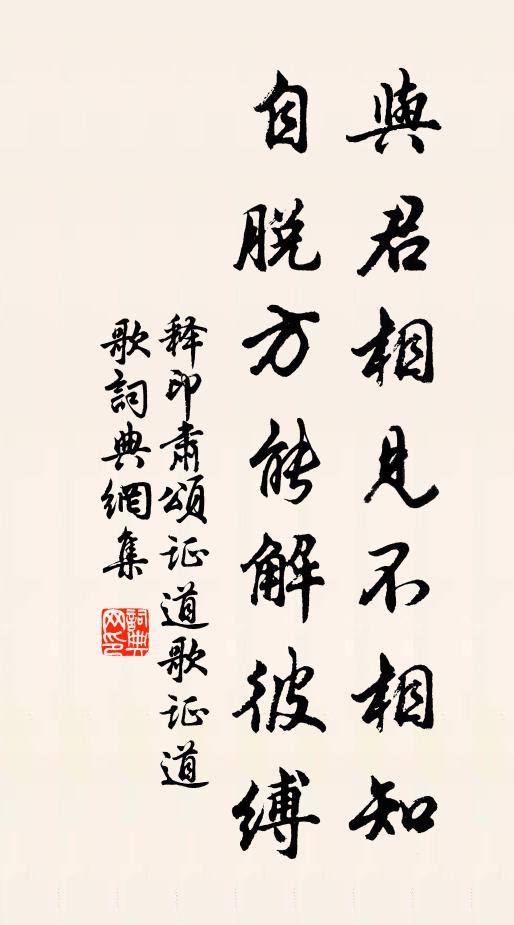 與君相見不相知
自脫方能解彼縛
释印肃頌证道歌证道
歌詞典網集
詞典
网印